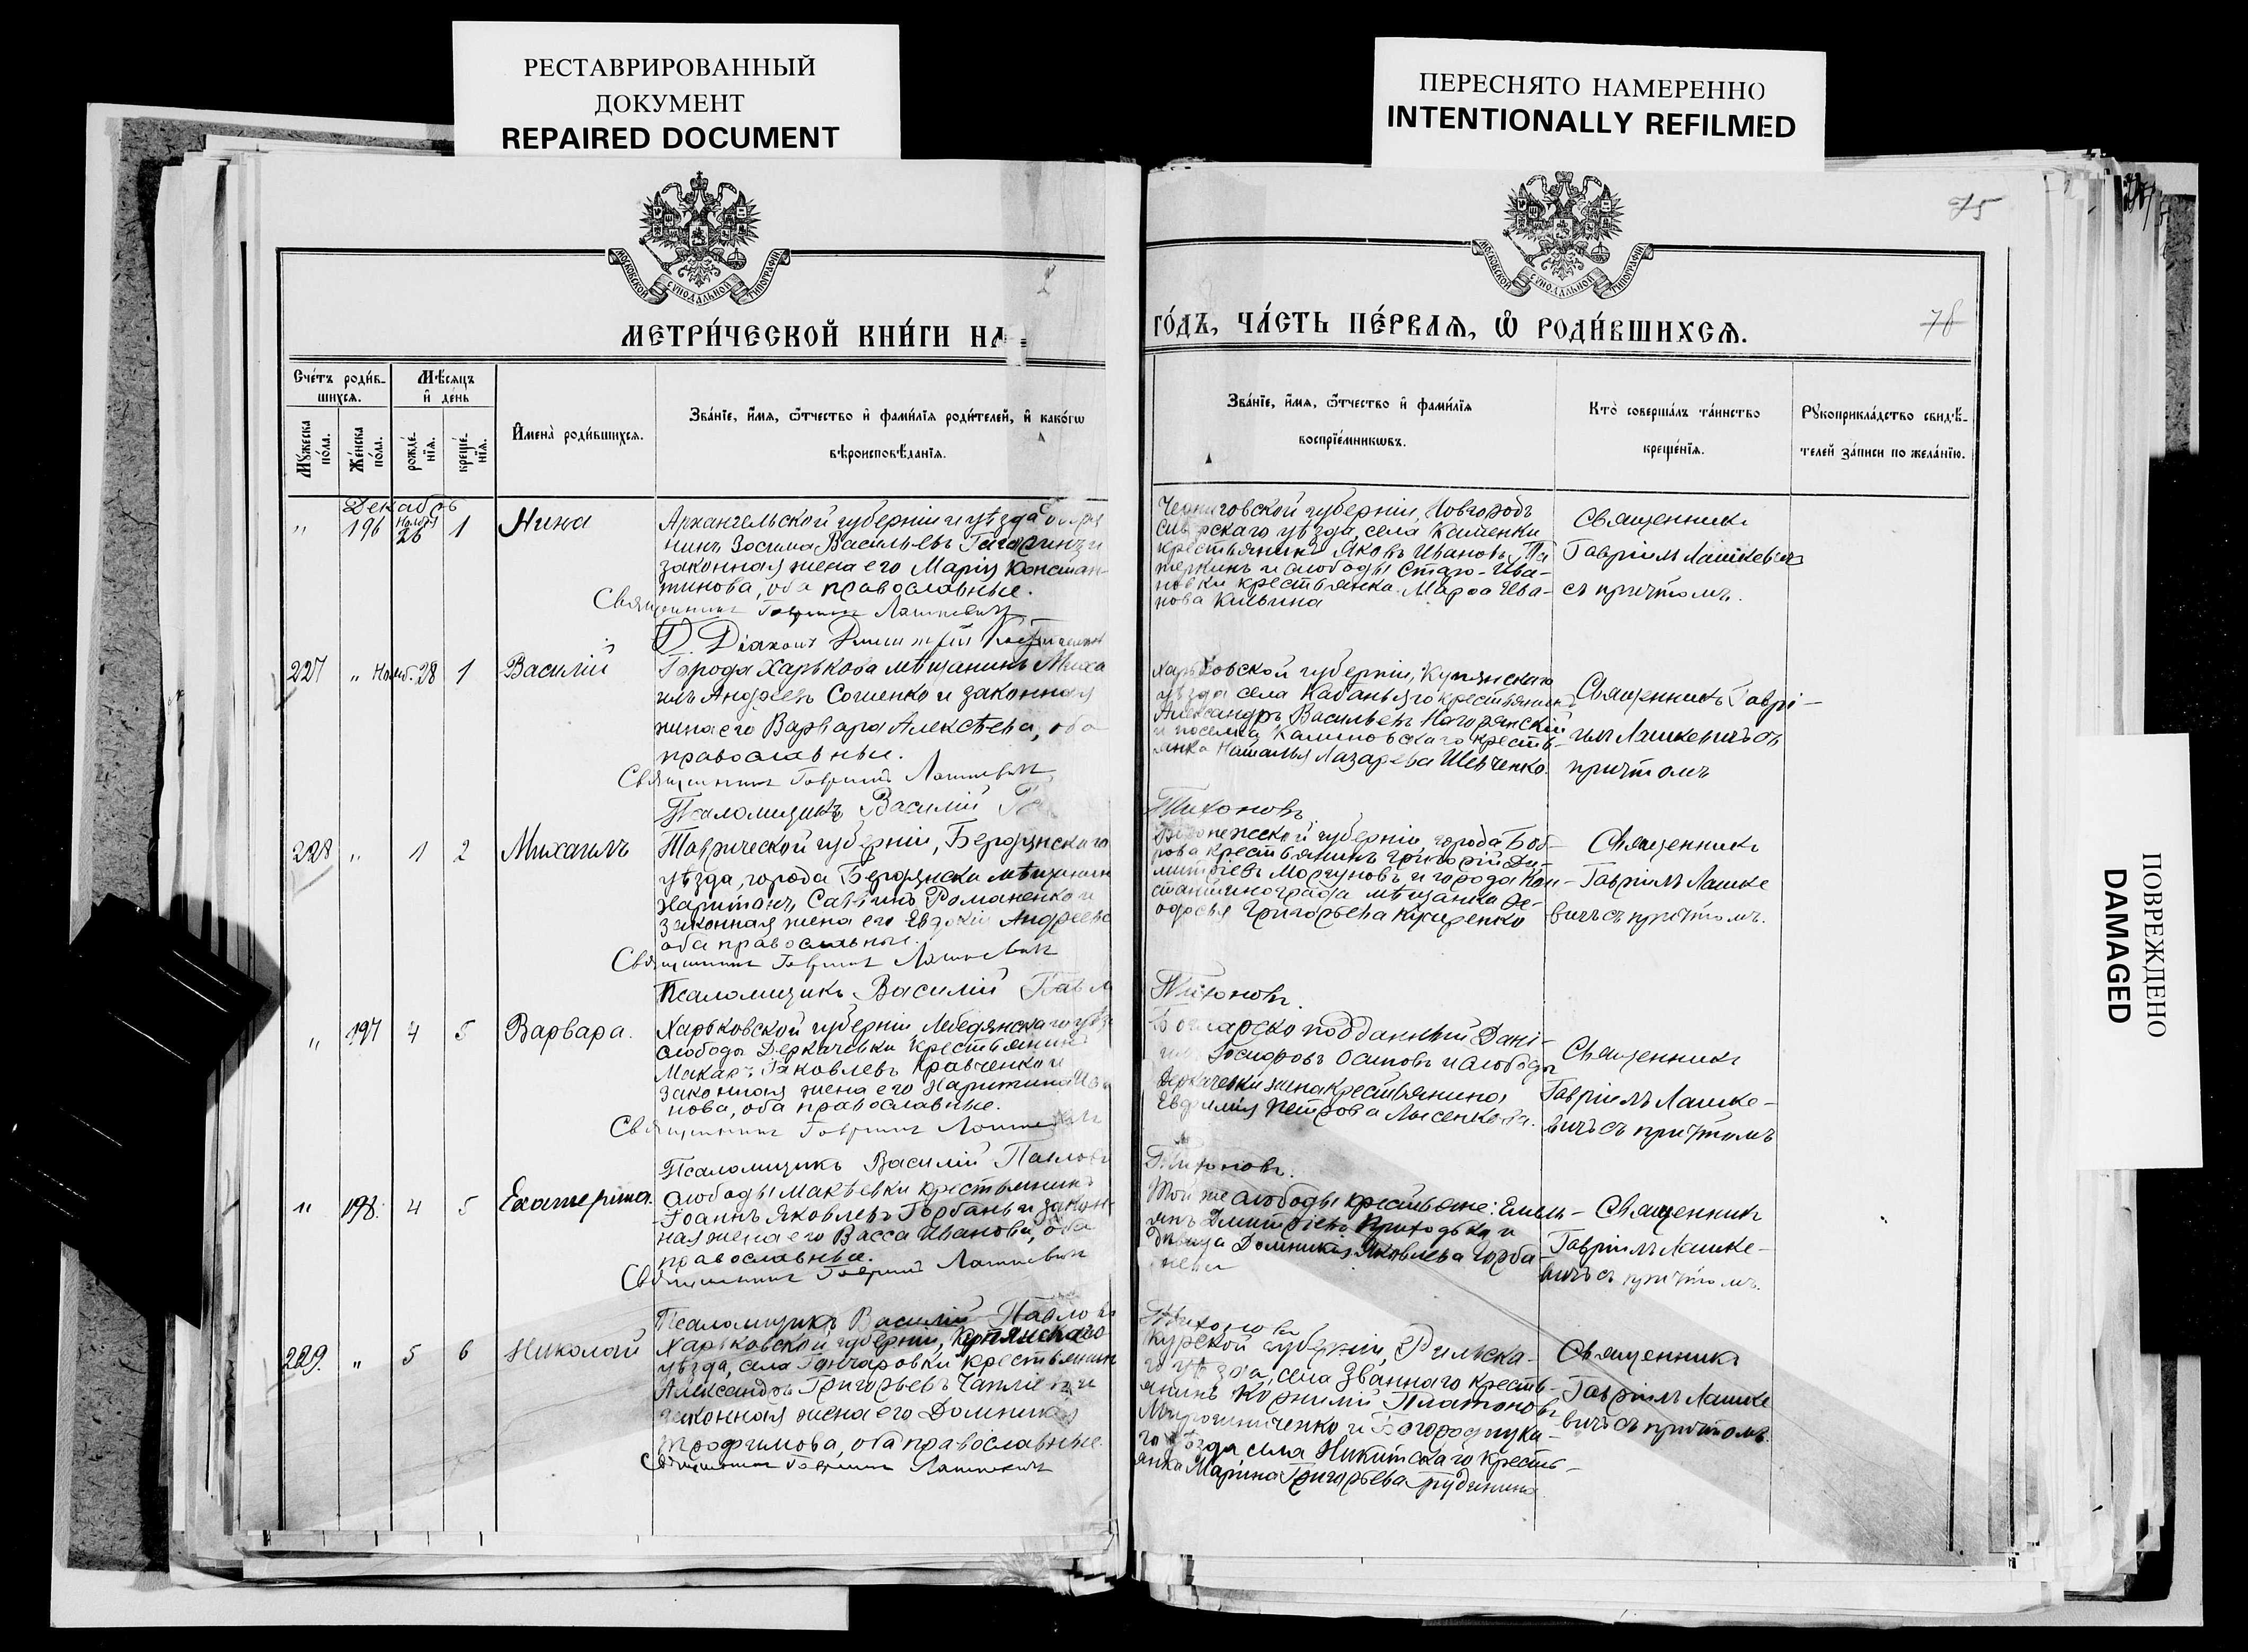 РЕСТАВРИРОВАННЫЙ
ДОКУМЕНТ
REPAIRED DOCUMENT
ПЕРЕСНЯТО НАМЕРЕННО
INTENTIONALLY REFILMED
МОСКОВСКОЙ СѴНОДАЛЬНОЙ ТИПОГРАФІИ
МОСКОВСКОЙ СѴНОДАЛЬНОЙ ТИПОГРАФІИ
75
76
МЕТРИ́ЧЕСКОЙ КНИ́ГИ НА
ГО́ДЪ, ЧА́СТЬ ПЕ́РВАѦ, Ѽ РОДИ́ВШИХСѦ.
Сче́тъ роди́в-
шихсѧ.
Мѣ́сѧцъ
и҆ де́нь
Мꙋ́жеска
по́ла.
Же́нска
по́ла.
рожде́-
нїѧ.
креще́-
нїѧ.
И҆мена̀ роди́вшихсѧ.
Зва́нїе, и҆́мѧ, ѻ҆́тчество и҆ фами́лїѧ роди́телей, и҆ како́гѡ
вѣроисповѣ́данїѧ.
Зва́нїе, и҆́мѧ, ѻ҆́тчество и҆ фами́лїѧ
воспрїе́мникѡвъ.
Кто̀ соверша́лъ та́инство
креще́нїѧ.
Рꙋкоприкла́дство свидѣ́-
телей за́писи по жела́нїю.
Декабрь
„ 196 Ноября 26 1 Нина
Архангельской губерніи и уѣзда
нинъ Зосима Васильевъ Гагаринъ и
законная жена его Марія Констан-
тинова, оба православные.
Священникъ Гавріилъ Лашкевичъ
Діаконъ Димитрій
Черниговской губерніи, Новгородъ
сиверскаго уѣзда, села Каменки
крестьянинъ Яковъ Ивановъ
и слободы Старо-Ива-
новки крестьянка Марѳа Ива-
нова Кильина
Священникъ
Гавріилъ Лашкевичъ
съ причтомъ.
227 „ Нояб. 28 1 Василій
Города Харькова мѣщанинъ Миха
илъ Андреевъ Сошенко и законная
жена его Варвара Алексѣева, оба
православные.
Священникъ Гавріилъ Лашкевичъ
Псаломщикъ Василій
Тихоновъ
Харьковской губерніи, Купянскаго
уѣзда села Кабаньяго крестьянинъ
Александръ Васильевъ Нагорянскій
и поселка Калиновскаго кресть-
янка Наталья Лазарева Шевченко.
Священникъ Гаврі-
илъ Лашкевичъ съ
причтомъ
228 „ 1 2 Михаилъ
Таврической губерніи, Бердянскаго
уѣзда, города Бердянска мѣщанинъ
Харитонъ Саввинъ Романенко и
законная жена его Евдокія Андреева
оба православные.
Священникъ Гавріилъ Лашкевичъ
Псаломщикъ Василій Павл
Тихоновъ.
Воронежской губерніи, города Боб-
рова крестьянинъ Григорій Ди-
митріевъ Моргуновъ и города Кон-
стантинограда мѣщанка Ѳе-
одосья Григорьева Кучеренко
Священникъ
Гавріилъ Лашке
вичъ съ причтомъ.
„ 197 4 5 Варвара.
Харьковской губерніи, Лебедянскаго уѣз
слободы Деркачевки крестьянинъ
Макаръ Яковлевъ Кравченко и
законная жена его Харитина
нова, оба православные.
Священникъ Гавріилъ Лашкевичъ
Псаломщикъ Василій Павловъ
Тихоновъ.
Болгарско подданный Дані-
илъ Ѳедоровъ Осиповъ и слободы
Деркачевки жена крестьянина
Евфимія Петрова Лысенкова.
Священникъ
Гавріилъ Лашке-
вичъ съ причтомъ
„ 198. 4 5 Екатерина.
слободы Макѣевки крестьянинъ
Іоаннъ Яковлевъ Горбань и закон-
ная жена его Васса Иванова, оба
православные.
Священникъ Гавріилъ Лашкевичъ
Псаломщикъ Василій Павловъ
Тихоновъ
Той же слободы крестьяне: Емель-
янъ Дмитріевъ Приходько и
дѣвица Домникія Яковлева Горба-
нева
Священникъ
Гавріилъ Лашке-
вичъ съ причтомъ.
229. „ 5 6 Николай
Харьковской губерніи, Купянскаго
уѣзда, села Гончаровки крестьянинъ
Александръ Григорьевъ и
законная жена его Домникія
Трофимова, оба православные
Священникъ Гавріилъ Лашкевичъ
Курской губерніи, Рыльска-
го уѣзда, села Званнаго кресть-
янинъ Корнилій Платоновъ
Мирошниченко и Богородицка-
го уѣзда села Никитскаго кресть-
янка Марина Григорьева
Священникъ
Гавріилъ Лашке
вичъ съ причтомъ.
ПОВРЕЖДЕНО
DAMAGED